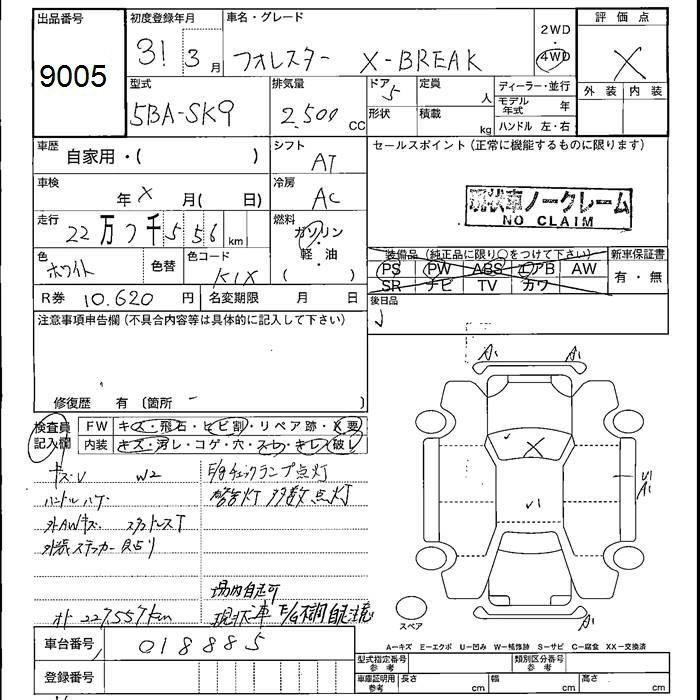 出品番号
9005
初度登録年月
31 3月
車名・グレード
フォレスター X-BREAK
2WD
・
4WD
評価点
X
外装 内装
型式
5BA-SK9
排気量
2,500 cc
ドア
5
形状
定員
人
積載
kg
ディーラー・並行
モデル年式 年
ハンドル 左・右
車歴
自家用・( )
シフト
AT
セールスポイント(正常に機能するものに限ります)
車検
年 X 月( 日)
冷房
AC
現状車ノークレーム
NO CLAIM
走行
22万7千556 km
燃料
ガソリン
・
軽・油
( )
装備品(純正品に限り○をつけて下さい)
PS PW ABS エアB AW
SR ナビ TV カワ
新車保証書
有・無
色
ホワイト
色替
色コード
K1X
R券 10.620 円
名変期限 月 日
後日品
注意事項申告欄(不具合内容等は具体的に記入して下さい)
修復歴 有 (箇所 )
検査員記入欄
FW キズ・飛石・ヒビ割・リペア跡・X要
内装 キズ・汚レ・コゲ・穴・スレ・キレ・破レ
キズ・U W2
E/gチェックランプ点灯
警告灯 多数点灯
外AWキズ. スタッドレスT
外装ステッカー
場内自走可
オド 227,557km
現状車 E/g不調 自走注意
A1 A1
X
U1
U1
A1
A1
スペア
A-キズ E-エクボ U-凹み W-補修跡 S-サビ C-腐食 XX-交換済
車台番号
018885
登録番号
型式指定番号
参考
類別区分番号
参考
車庫証明用
参考
長さ cm 幅 cm 高さ cm